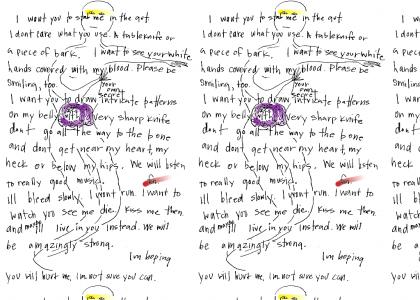 I want you to stab me in the gut
I dont care what you use. A tableknife or
a piece of bark. I want to see your white
hands covered with my blood. Please be
smiling, too. your own secret
I want you to draw intricate patterns
on my belly with very sharp knife
dont go all the way to the bone
and dont get near my heart, my
neck or below my hips. We will listen
to really good music.
Ill bleed slowly. I wont run. I want to
watch you see me die. Kiss me then
and live in you instead. We will
be amazingly strong.
Im hoping
you will hurt me, im not sure you can.
I want you to stab me in the gut
I dont care what you use. A tableknife or
a piece of bark. I want to see your white
hands covered with my blood. Please be
smiling, too. your own secret
I want you to draw intricate patterns
on my belly with very sharp knife
dont go all the way to the bone
and dont get near my heart, my
neck or below my hips. We will listen
to really good music.
Ill bleed slowly. I wont run. I want to
watch you see me die. Kiss me then
and live in you instead. We will
be amazingly strong.
Im hoping
you will hurt me, im not sure you can.